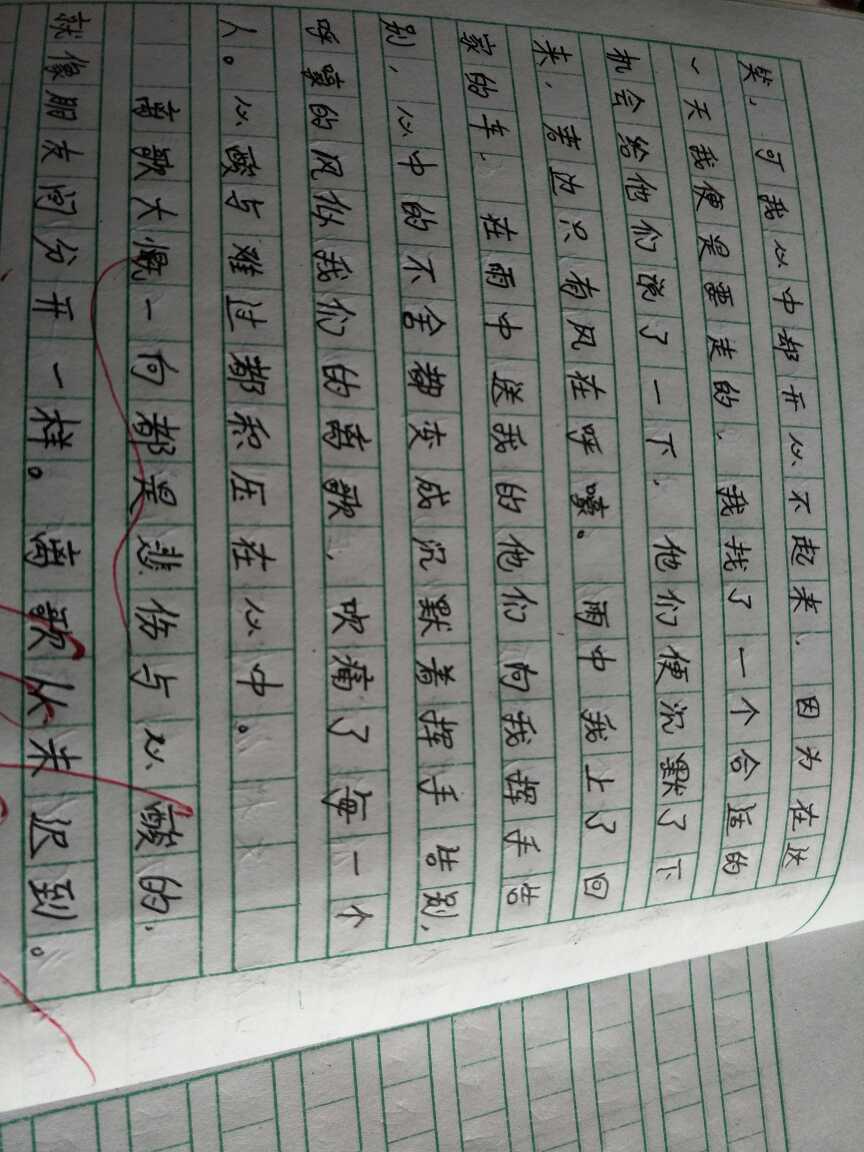 笑，可我心中却开心不起来，因为在这
一天我便是要走的，我找了一个合适的
机会给他们说了一下，他们便沉默了下
来，旁边只有风在呼嚎。雨中我上了回
家的车，在雨中送我的他们向我挥手告
别，心中的不舍都变成沉默着挥手告别，
呼嚎的风似我们的离歌，吹痛了每一个
人。心酸与难过都积压在心中。
离歌大慨一向都是悲伤与心酸的，
就像朋友间分开一样。离歌从未迟到。